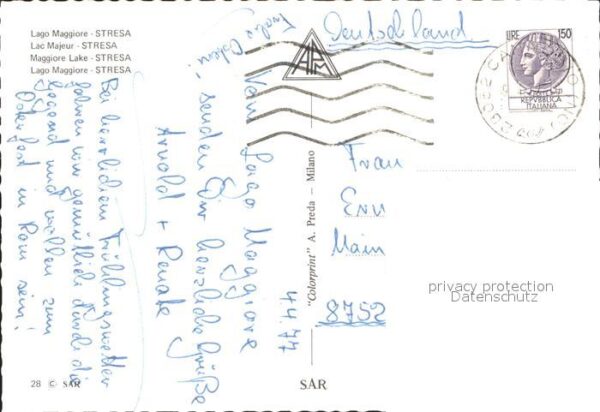 Lago Maggiore - STRESA
Lac Majeur - STRESA
Maggiore Lake - STRESA
Lago Maggiore - STRESA
Deutschland
LIRE 150
REPVBBLICA
ITALIANA
4.4.77
Vom Lago Maggiore
senden Dir herzliche Grüße
Arnold + Renate
Frohe Ostern!
Bei herrlichem Frühlingswetter
fahren wir gemütlich durch die
Gegend und wollen zum
Osterfest in Rom sein!
"Colorprint" A. Preda - Milano
Frau
Main
8752
privacy protection
Datenschutz
28 © SAR
SAR